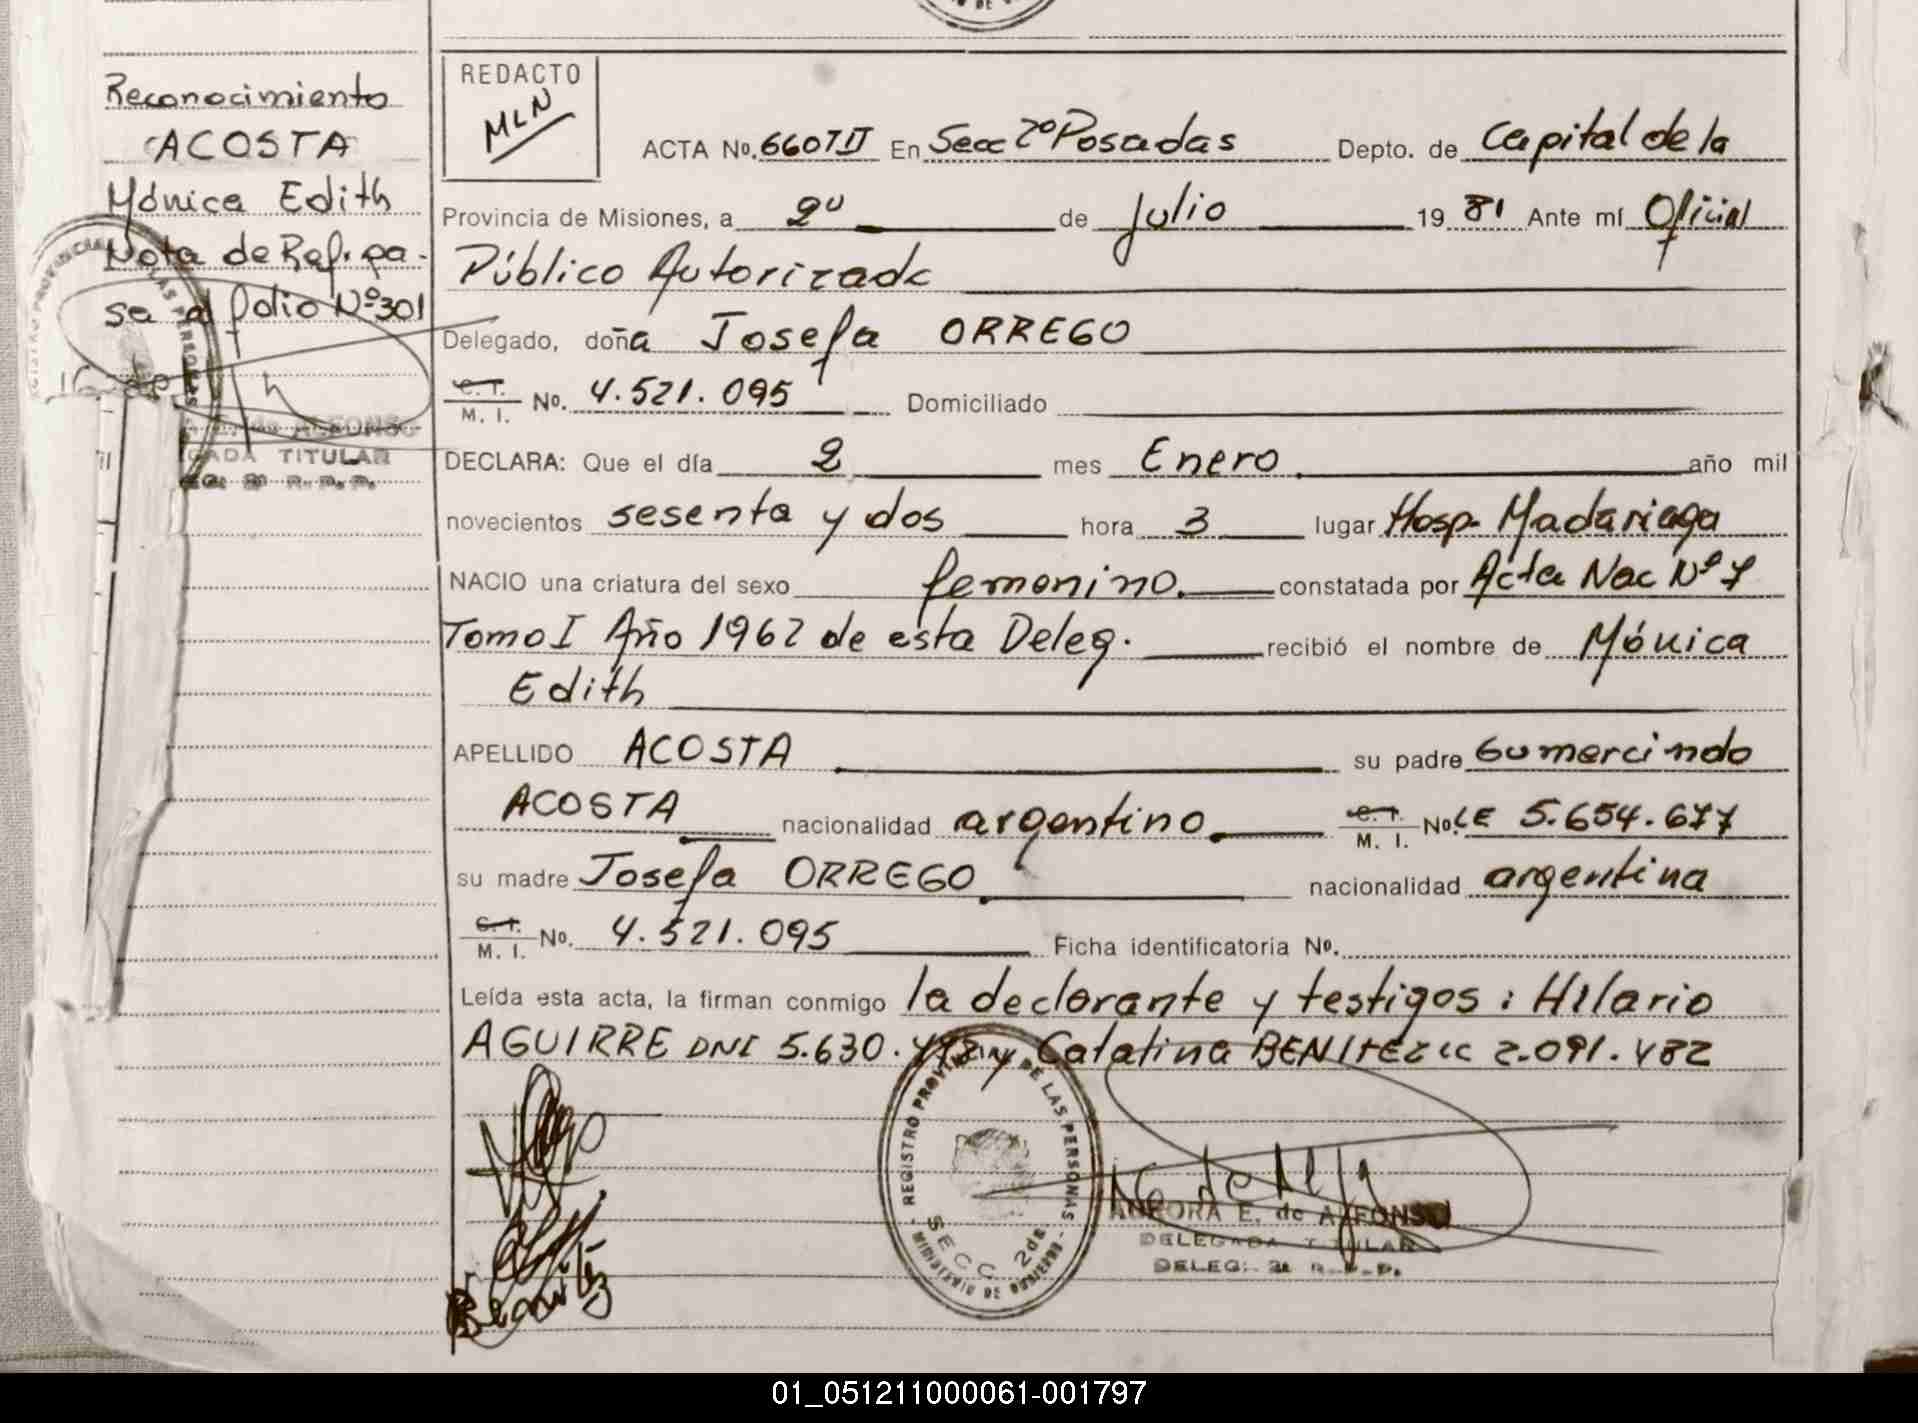 Reconocimiento
ACOSTA
Mónica Edith
Nota de Ref. pa-
sa al folio Nº 301
ALFONSO
TITULAR
REDACTO
MLN
ACTA No. 660 TII En Secc 2º Posadas Depto. de Capital de la
Provincia de Misiones, a de Julio 1981 Ante mí Oficial
Público Autorizado
Delegado, doña Josefa ORREGO
C. I. M. I. No. 4.521.095 Domiciliado
DECLARA: Que el día 2 mes Enero año mil
novecientos sesenta y dos hora 3 lugar Hosp. Madariaga
NACIO una criatura del sexo femenino constatada por Acta Nac Nº 7
Tomo I Año 1962 de esta Deleg. recibió el nombre de Mónica
Edith
APELLIDO ACOSTA su padre Gumercindo
ACOSTA nacionalidad argentino C. I. M. I. No. LE 5.654.677
su madre Josefa ORREGO nacionalidad argentina
C. I. M. I. No. 4.521.095 Ficha identificatoria No.
Leída esta acta, la firman conmigo la declarante y testigos: Hilario
AGUIRRE DNI 5.630. y Catalina BENITEZ LC 2.091.482
REGISTRO PROVINCIAL DE LAS PERSONAS
SECC 2da
AURORA E. de ALFONSO
DELEGADA TITULAR
DELEG. 2a R.P.P.
Benitez
01_051211000061-001797